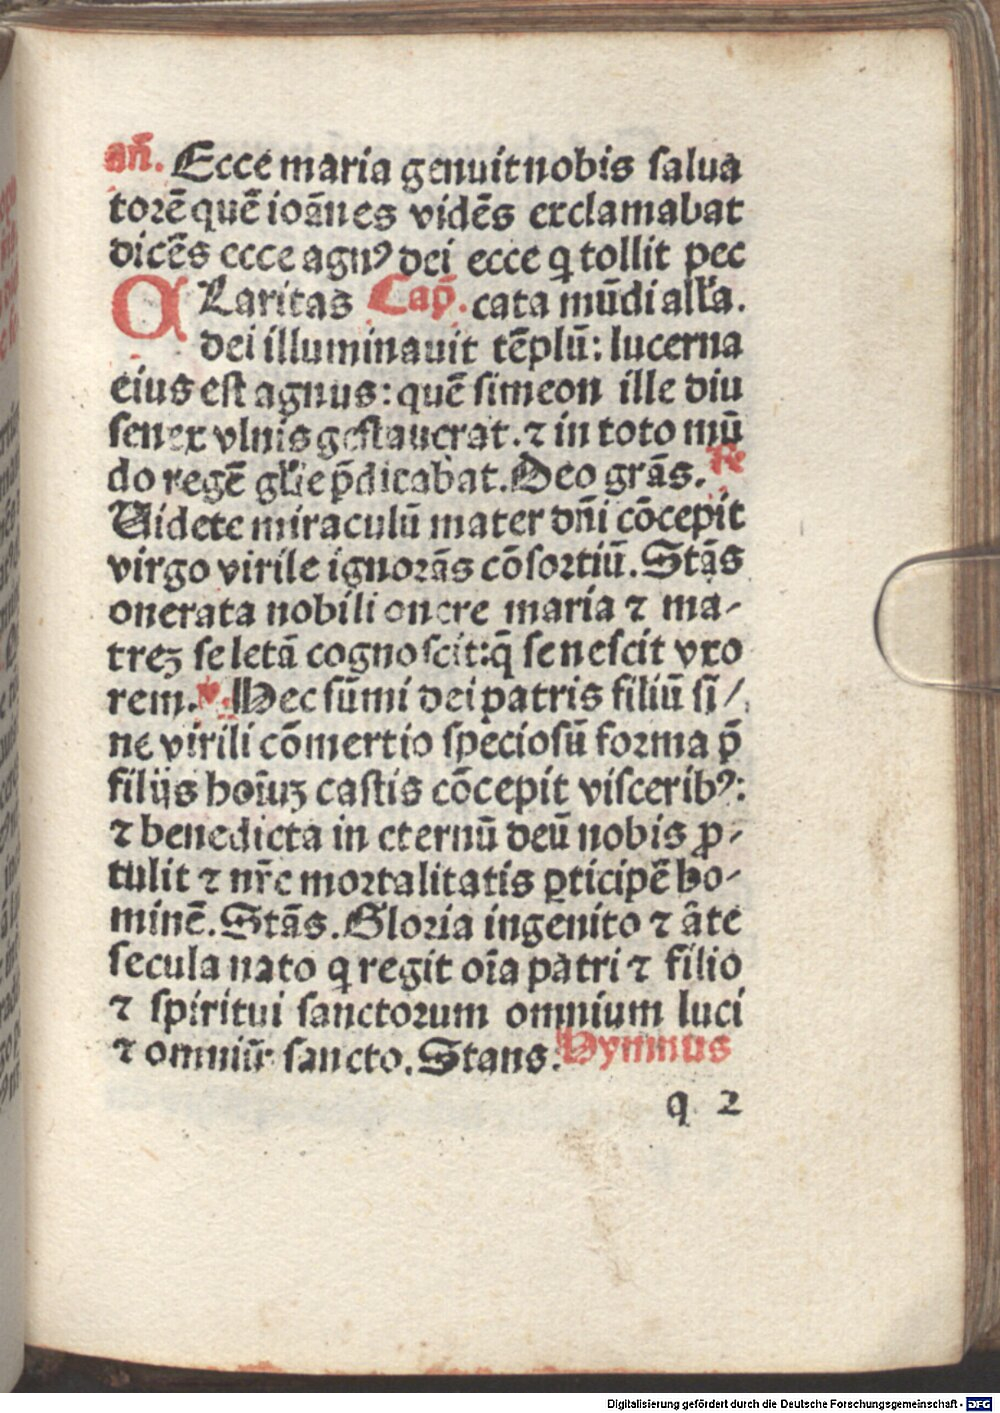 an̄. Ecce maria genuit nobis salua
torē quē ioānes vidēs exclamabat
dicēs ecce agnꝰ dei ecce q tollit pec
CLaritas Cap̄. cata mūdi alla.
dei illuminauit tēplū: lucerna
eius est agnus: quē simeon ille diu
senex vlnis gestauerat. ⁊ in toto mū
do regē glīe p̄dicabat. Deo grās. Re
Uidete miraculū mater dn̄i cōcepit
virgo virile ignorās cōsortiū. Stās
onerata nobili onere maria ⁊ ma-
treꝫ se letā cognoscit: q̄ se nescit vxo
rem. v. Hec sūmi dei patris filiū si/
ne virili cōmertio speciosū forma p̄
filijs hoīuꝫ castis cōcepit visceribꝰ:
⁊ benedicta in eternū deū nobis ꝓ-
tulit ⁊ nr̄e mortalitatis ꝑticipē ho-
minē. Stās. Gloria ingenito ⁊ āte
secula nato q regit oīa patri ⁊ filio
⁊ spiritui sanctorum omnium luci
⁊ omniū sancto. Stans. Hymnus
q 2
Digitalisierung gefördert durch die Deutsche Forschungsgemeinschaft - DFG